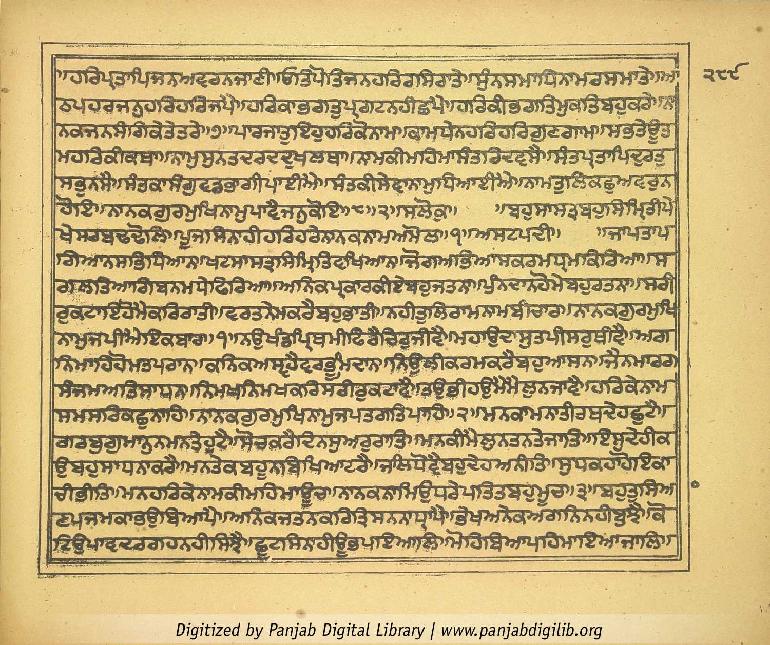 ਹਰਿਪ੍ਰਤਾਪਿਜਨਅਵਰਨਜਾਣੀ॥ਓਤਿਪੋਤਿਜਨਹਰਿਰਸਿਰਾਤੇ॥ਸੁੰਨਸਮਾਧਿਨਾਮਰਸਮਾਤੇ॥ਆ
੨੮੯
ਠਪਹਰਜਨੁਹਰਿਹਰਿਜਪੈ॥ਹਰਿਕਾਭਗਤੁਪ੍ਰਗਟਨਹੀਛਪੈ॥ਹਰਿਕੀਭਗਤਿਮੁਕਤਿਬਹੁਕਰੇ॥ਨਾ
ਨਕਜਨਸੰਗਿਕੇਤੇਤਰੇ॥੭॥ਪਾਰਜਾਤੁਇਹੁਹਰਿਕੋਨਾਮ॥ਕਾਮਧੇਨਹਰਿਹਰਿਗੁਣਗਾਮ॥ਸਭਤੇਊਤ
ਮਹਰਿਕੀਕਥਾ॥ਨਾਮੁਸੁਨਤਦਰਦਦੁਖਲਥਾ॥ਨਾਮਕੀਮਹਿਮਾਸੰਤਰਿਦਵਸੈ॥ਸੰਤਪ੍ਰਤਾਪਿਦੁਰਤੁ
ਸਭੁਨਸੈ॥ਸੰਤਕਾਸੰਗੁਵਡਭਾਗੀਪਾਈਐ॥ਸੰਤਕੀਸੇਵਾਨਾਮੁਧਿਆਈਐ॥ਨਾਮਤੁਲਿਕਛੁਅਵਰੁਨ
ਹੋਇ॥ਨਾਨਕਗੁਰਮੁਖਿਨਾਮੁਪਾਵੈਜਨੁਕੋਇ॥੮॥੨॥ਸਲੋਕੁ॥ ॥ਬਹੁਸਾਸਤ੍ਰਬਹੁਸਿਮ੍ਰਿਤੀਪੇ
ਖੇਸਰਬਢਢੋਲਿ॥ਪੂਜਸਿਨਾਹੀਹਰਿਹਰੇਨਾਨਕਨਾਮਅਮੋਲ॥੧॥ਅਸਟਪਦੀ॥ ॥ਜਾਪਤਾਪ
ਗਿਆਨਸਭਿਧਿਆਨ॥ਖਟਸਾਸਤ੍ਰਸਿਮ੍ਰਿਤਿਵਖਿਆਨ॥ਜੋਗਅਭਿਆਸਕਰਮਧ੍ਰਮਕਿਰਿਆ॥ਸ
ਗਲਤਿਆਗਿਬਨਮਧੇਫਿਰਿਆ॥ਅਨਿਕਪ੍ਰਕਾਰਕੀਏਬਹੁਜਤਨਾ॥ਪੁੰਨਦਾਨਹੋਮੇਬਹੁਰਤਨਾ॥ਸਰੀ
ਰੁਕਟਾਇਹੋਮੈਕਰਿਰਾਤੀ॥ਵਰਤਨੇਮਕਰੈਬਹੁਭਾਤੀ॥ਨਹੀਤੁਲਿਰਾਮਨਾਮਬੀਚਾਰ॥ਨਾਨਕਗੁਰਮੁਖਿ
ਨਾਮੁਜਪੀਐਇਕਬਾਰ॥੧॥ਨਉਖੰਡਪ੍ਰਿਥਮੀਫਿਰੈਚਿਰੁਜੀਵੈ॥ਮਹਾਉਦਾਸੁਤਪੀਸਰੁਥੀਵੈ॥ਅਗ
ਨਿਮਾਹਿਹੋਮਤਪਰਾਨ॥ਕਨਿਕਅਸ੍ਵਹੈਵਰਭੂਮਿਦਾਨ॥ਨਿਉਲੀਕਰਮਕਰੈਬਹੁਆਸਨ॥ਜੈਨਮਾਰਗ
ਸੰਜਮਅਤਿਸਾਧਨ॥ਨਿਮਖਨਿਮਖਕਰਿਸਰੀਰੁਕਟਾਵੈ॥ਤਉਭੀਹਉਮੈਮੈਲੁਨਜਾਵੈ॥ਹਰਿਕੇਨਾਮ
ਸਮਸਰਿਕਛੁਨਾਹਿ॥ਨਾਨਕਗੁਰਮੁਖਿਨਾਮੁਜਪਤਗਤਿਪਾਹਿ॥੨॥ਮਨਕਾਮਨਾਤੀਰਥਦੇਹਛੁਟੈ॥
ਗਰਬੁਗੁਮਾਨੁਨਮਨਤੇਹੁਟੈ॥ਸੋਚਕਰੈਦਿਨਸੁਅਰੁਰਾਤਿ॥ਮਨਕੀਮੈਲੁਨਤਨਤੇਜਾਤਿ॥ਇਸੁਦੇਹੀਕ
ਉਬਹੁਸਾਧਨਾਕਰੈ॥ਮਨਤੇਕਬਹੂਨਬਿਖਿਆਟਰੈ॥ਜਲਿਧੋਵੈਬਹੁਦੇਹਅਨੀਤਿ॥ਸੁਧਕਹਾਹੋਇਕਾ
ਚੀਭੀਤਿ॥ਮਨਹਰਿਕੇਨਾਮਕੀਮਹਿਮਾਊਚ॥ਨਾਨਕਨਾਮਿਉਧਰੇਪਤਿਤਬਹੁਮੂਚ॥੩॥ਬਹੁਤੁਸਿਅ
ਾਣਪਜਮਕਾਭਉਬਿਆਪੈ॥ਅਨਿਕਜਤਨਕਰਿਤ੍ਰਿਸਨਨਾਧ੍ਰਾਪੈ॥ਭੇਖਅਨੇਕਅਗਨਿਨਹੀਬੁਝੈ॥ਕੋ
ਟਿਉਪਾਵਦਰਗਹਨਹੀਸਿਝੈ॥ਛੂਟਸਿਨਾਹੀਊਭਪਇਆਲਿ॥ਮੋਹਿਬਿਆਪਹਿਮਾਇਆਜਾਲਿ॥
Digitized by Panjab Digital Library | www.panjabdigilib.org